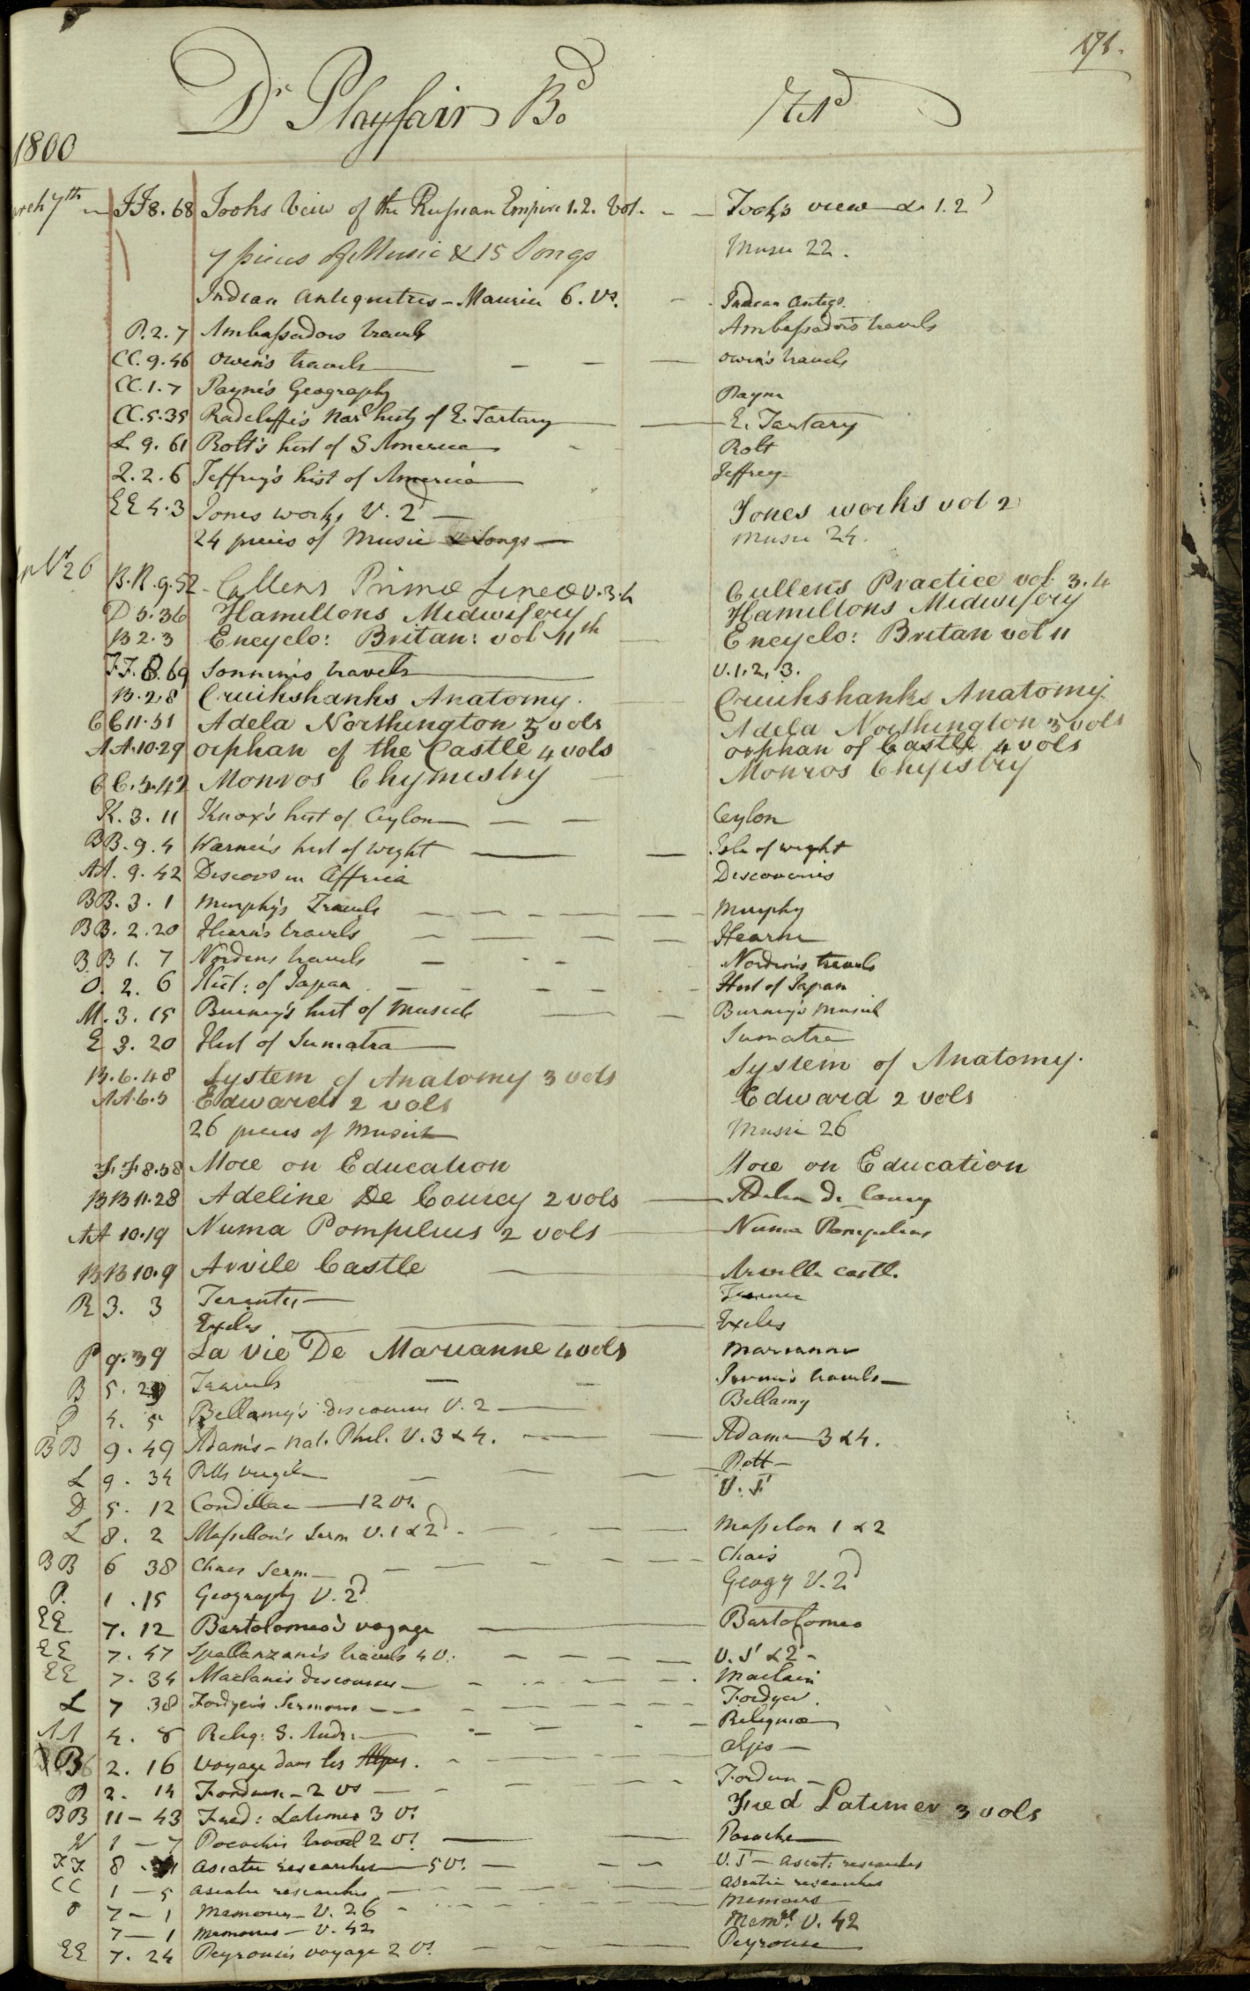 171.
Dr Playfair Bd Rtd
1800
March 7th FF8.68 Tooks View of the Russian Empire 1.2. Vol. Took's view &c 1.2
7 pieces of Music & 15 Songs Music 22.
Indian Antiquities - Maurice 6. Vs. Indian Antiqs.
P.2.7 Ambassadors travels Ambassadors travels
CC.9.46 Owen's travels Owen's travels
CC.1.7 Payne's Geography Payne
CC.5.35 Radcliffe's Narl histy of E. Tartary E. Tartary
L 9.61 Bolt's hist of S America Bolt
2.2.6 Jeffrey's hist of America Jeffrey
EE 4.3 Jones works V. 2d Jones works vol 2
24 pieces of Music & Songs Music 24.
26 B.R.9.52 Cullens Primæ Lineæ v.3.4 Cullens Practice vol 3.4
D 5.36 Hamiltons Midwifery Hamiltons Midwifery
B 2.3 Encyclo: Britan: vol 11th Encyclo: Britan vol 11
FF.8.69 Sonnini's travels V.1.2.3.
B.2.8 Cruikshanks Anatomy. Cruikshanks Anatomy.
CC11.51 Adela Northington 3 vols Adela Northington 3 vols
AA.10.29 orphan of the Castle 4 vols orphan of Castle 4 vols
CC.5.42 Monros Chymistry Monros Chyistry
K.3.11 Knox's hist of Ceylon Ceylon
BB.9.4 Warner's hist of Wight Isle of wight
AA.9.42 Discovs in Affrica Discoveries
BB.3.1 Murphy's Travels Murphy
BB.2.20 Hearn's travels Hearne
BB 1.7 Nordens travels Norden's travels
O.2.6 Hist: of Japan Hist of Japan
M.3.15 Burney's hist of Musick Burney's Musick
E 3.20 Hist of Sumatra Sumatra
B.6.48 System of Anatomy 3 vols System of Anatomy.
AA.6.5 Edwards 2 vols Edward 2 vols
26 pieces of Musick Music 26
FF8.58 More on Education More on Education
BB11.28 Adeline De Courcy 2 vols Adelin De Courcy
AA 10.19 Numa Pompilius 2 vols Numa Pompilius
BB10.9 Arvile Castle Arville Castle
R 3.3 Terentii Terence
Exiles Exiles
P 9.39 La Vie De Marianne 4 vols Marianne
B 5.29 Travels travels
P 4.5 Bellamy's discourses V.2 Bellamy
BB 9.49 Adam's - Nat. Phil. V.3 & 4. Adam 3 & 4.
L 9.34 Potts Virgil Pott
D 5.12 Condillac 12 Vs. V. 1st
L 8.2 Massillon's Serm V. 1 & 2d Massilon 1 & 2
BB 6 38 Chais Serm Chais
P. 1.15 Geography V. 2d Geogy V. 2d
EE 7.12 Bartolomeo's voyage Bartolomeo
EE 7.47 Spallanzani's travels 4 V. V. 1st & 2d
EE 7.34 Maclanes discourses Maclain
L 7 38 Fordyce's Sermons Fordyce.
AA 4.8 Reliq: S. Andr: Reliquiæ
B 2.16 Voyage dans les Alpes. Alps
B 2.14 Fordun - 2 Vs Fordun
BB 11-43 Fred: Latimer 3 Vs Fred Latimer 3 vols
N 1-7 Pococke's travel 2 Vs Pococke
FF 8. Asiatic researches 5 Vs. V. 1st Asiat: researches
CC 1-5 Asiatic researches Asiatic researches
O 7-1 Memoires - V. 26 Memoires
7-1 Memoires - V. 42 V. 42
EE 7.24 Peyrouse's voyage 2 Vs. Peyrouse